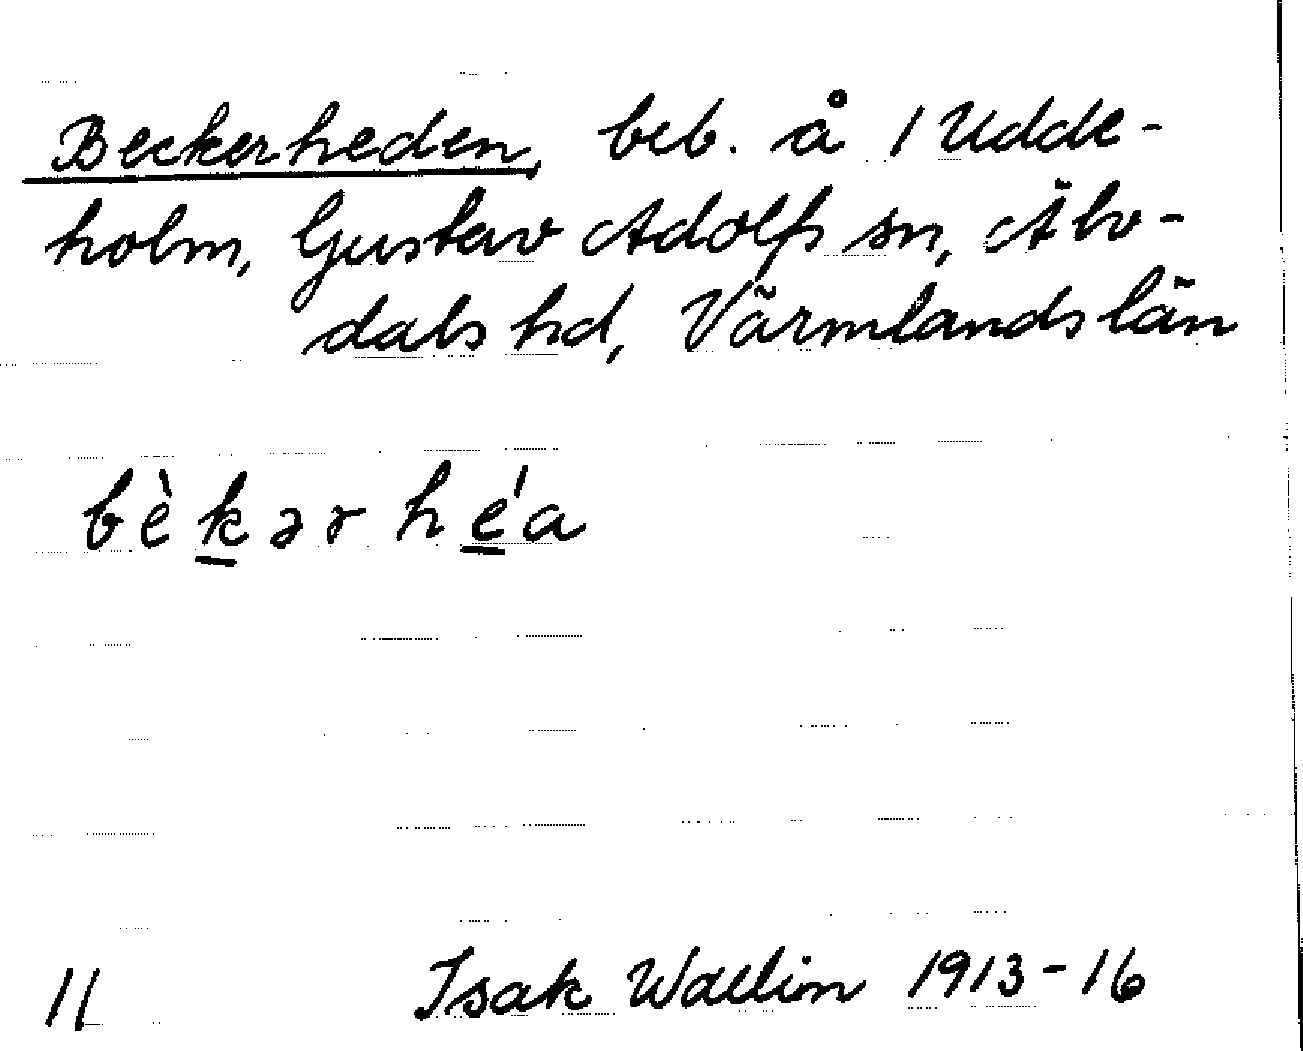 Beckerheden, beb. å 1 Udde-
holm, Gustav Adolfs sn, Älv-
dals hd, Värmlands län
bèkər héa
11 Isak Wallin 1913-16